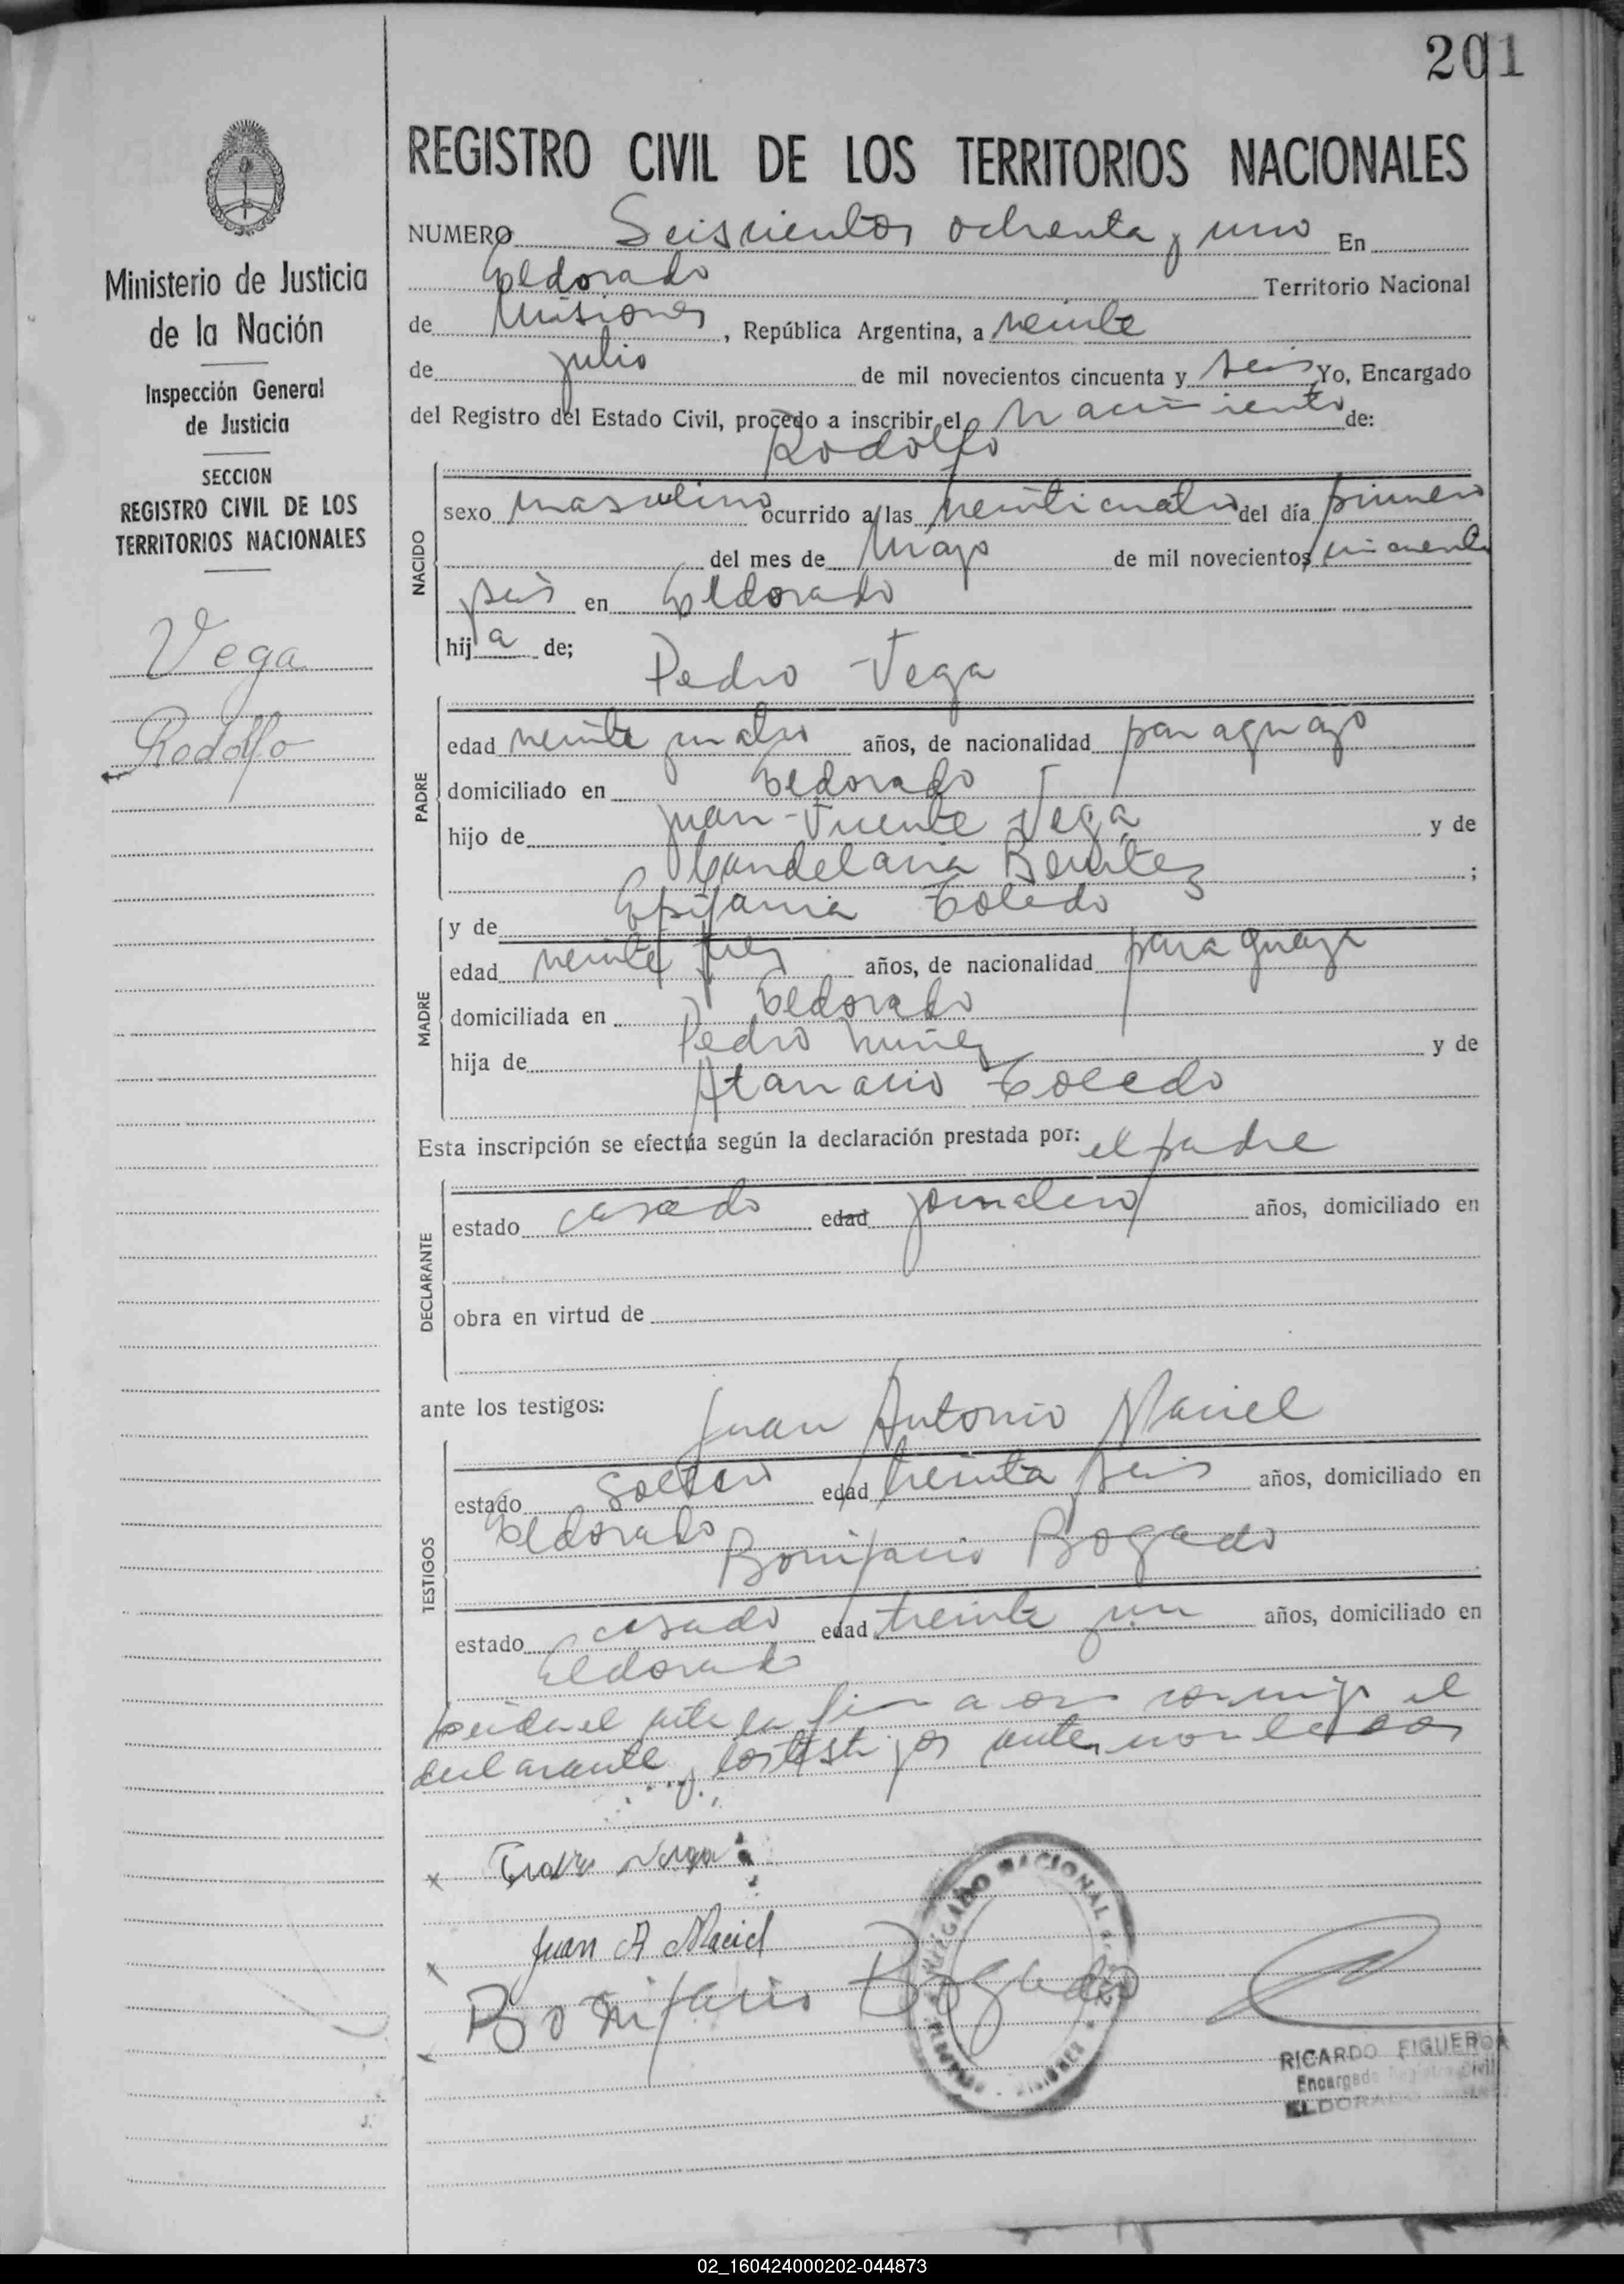 201
REGISTRO CIVIL DE LOS TERRITORIOS NACIONALES
Ministerio de Justicia
de la Nación
Inspección General
de Justicia
SECCION
REGISTRO CIVIL DE LOS
TERRITORIOS NACIONALES
Vega
Rodolfo
NUMERO Seiscientos ochenta y uno En
Eldorado Territorio Nacional
de Misiones, República Argentina, a veinte
de julio de mil novecientos cincuenta y seis Yo, Encargado
del Registro del Estado Civil, procedo a inscribir el Nacimiento de:
Rodolfo
NACIDO
sexo masculino ocurrido a las veinticuatro del día primero
del mes de Mayo de mil novecientos cincuenta
seis en Eldorado
hija de;
Pedro Vega
PADRE
edad veinte cuatro años, de nacionalidad paraguayo
domiciliado en Eldorado
hijo de Juan Vicente Vega y de
Candelaria Benitez ;
y de Epifania Toledo
MADRE
edad veinte tres años, de nacionalidad paraguaya
domiciliada en Eldorado
hija de Pedro Nuñez y de
Atanacio Toledo
Esta inscripción se efectúa según la declaración prestada por: el padre
DECLARANTE
estado casado edad jornalero años, domiciliado en
obra en virtud de
ante los testigos:
Juan Antonio Maciel
TESTIGOS
estado soltero edad treinta seis años, domiciliado en
Eldorado
Bonifacio Bogado
estado casado edad treinta un años, domiciliado en
Eldorado
Leida el acta la firmaron conmigo el
declarante y los testigos antes nombrados
Vega
Juan A Maciel
Bonifacio Bogado
JUZGADO NACIONAL DE PAZ
MISIONES
RICARDO FIGUEROA
Encargado Registro Civil
ELDORADO
02_160424000202-044873